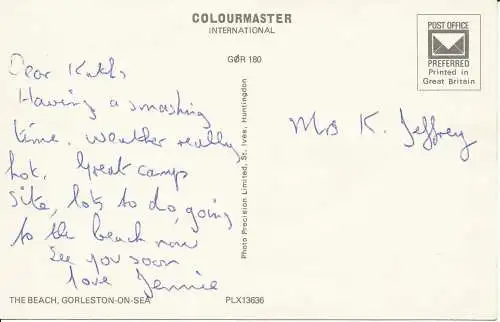 COLOURMASTER
INTERNATIONAL
GØR 180
POST OFFICE
PREFERRED
Printed in
Great Britain
Dear Kath,
Having a smashing
time, weather really
hot. Great camp
site, lots to do, going
to the beach now
See you soon
love Jennie
Mrs K. Jeffrey
Photo Precision Limited, St. Ives, Huntingdon
THE BEACH, GORLESTON-ON-SEA
PLX13636